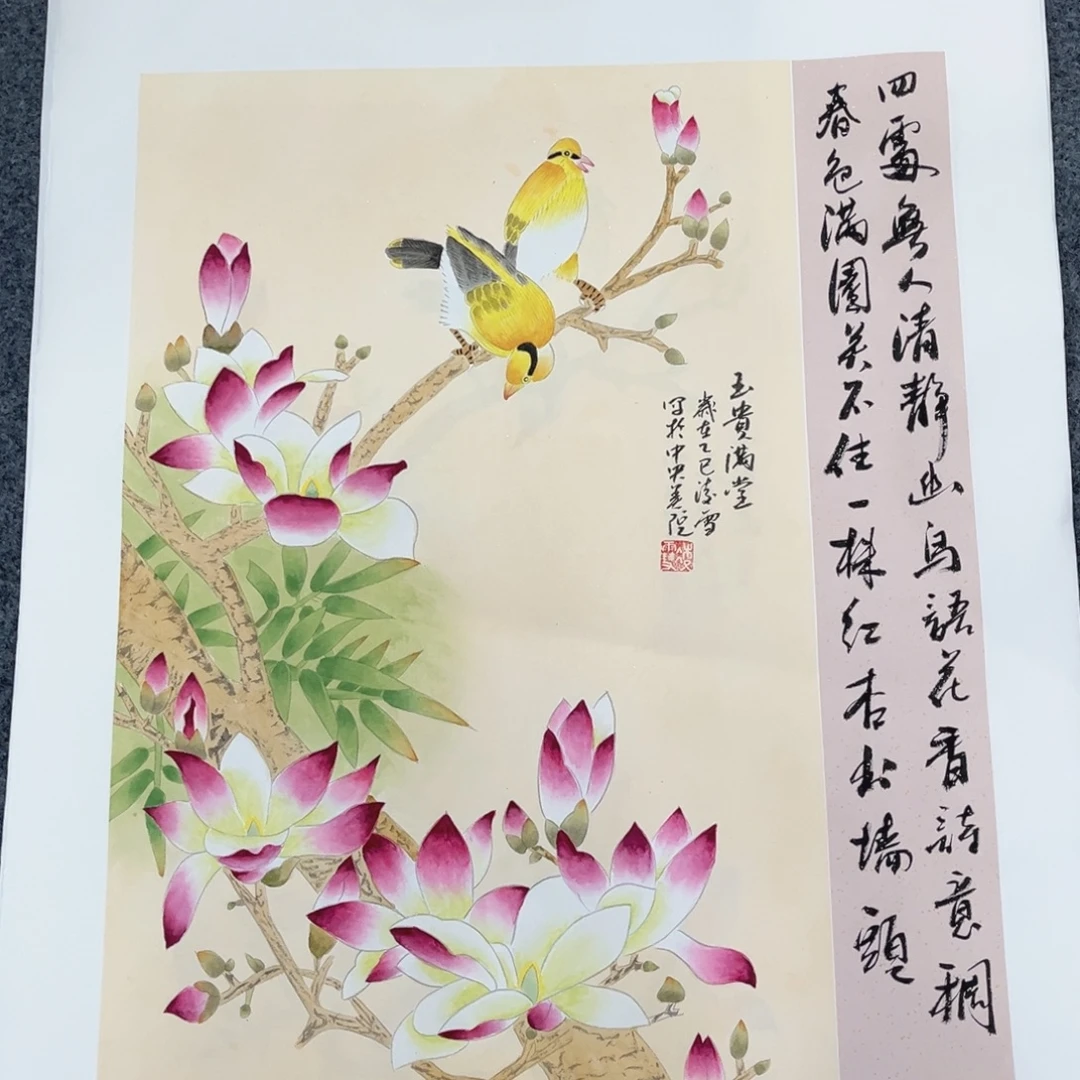 四處無人清靜幽鳥語花香詩意稠
春色满園关不住一株红杏出墙頭
玉貴满堂
歲在乙巳
写於中央美院